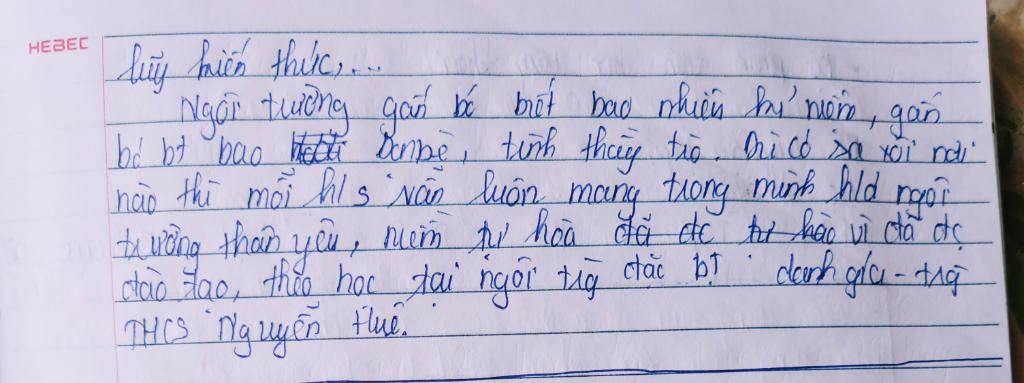 HEBEC
luỹ kiến thức,...
Ngôi trường gắn bó biết bao nhiên kỷ niệm, gắn
bó bt bao bạn bè, tình thầy trò. Dù có xa xôi nơi
nào thì mỗi h/s vẫn luôn mang trong mình h/d ngôi
trường thân yêu, niềm tự hoà đã đc tự hào vì đã đc
đào tạo, theo học tại ngôi trg đặc bt danh gía - trg
THCS Nguyễn Huệ.